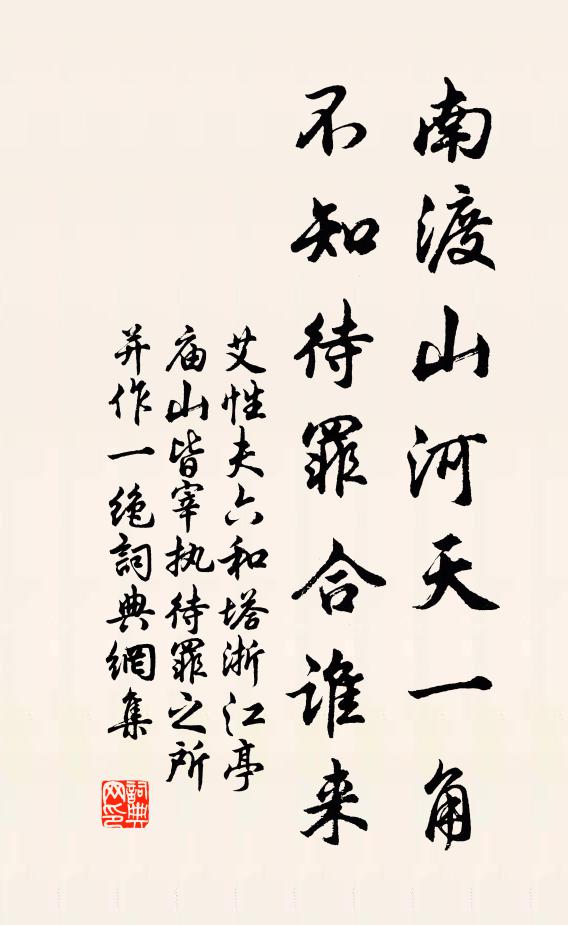 南渡山河天一角
不知待罪合谁来
艾性夫六和塔浙江亭
庙山皆宰执待罪之所
并作一绝詞典網集
詞典
网印